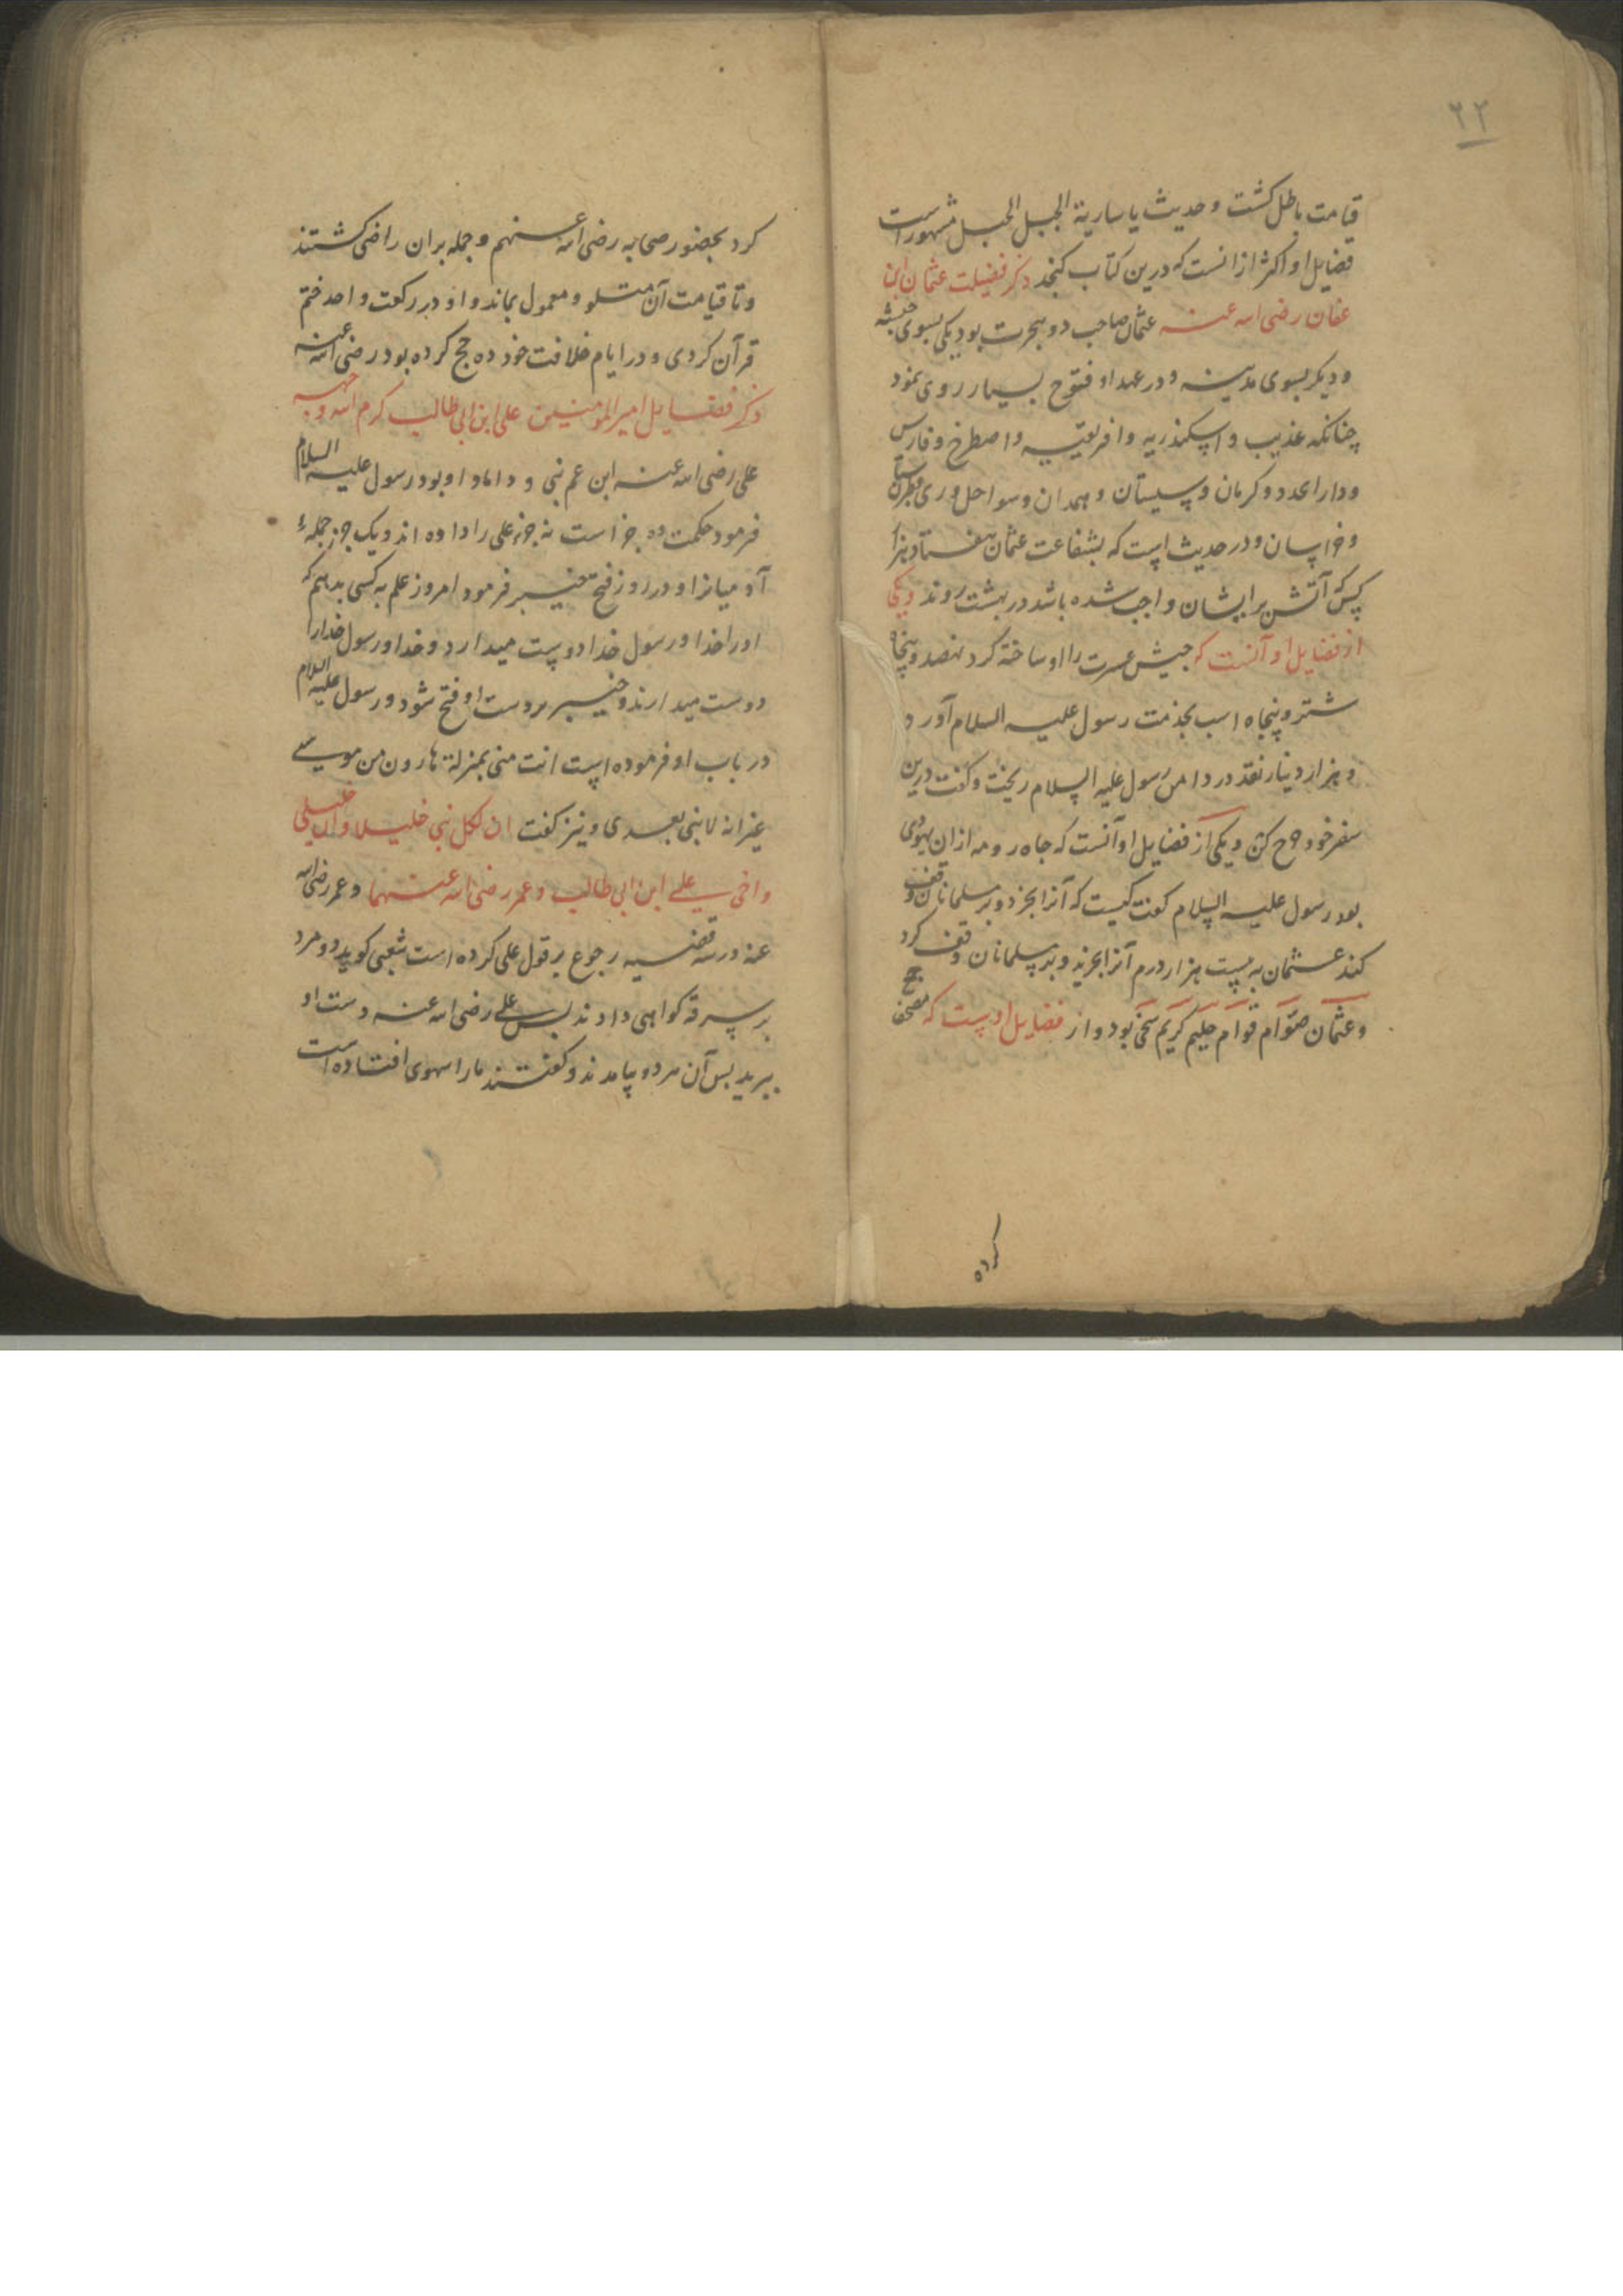 ۲۲
قیامت باطل کشت و حدیث یا ساریة الجبل الجبل مشهور است
فضایل او اکثر از انست که درین کتاب کنجد ذکر فضیلت عثمان ابن
عفان رضی الله عنه عثمان صاحب دو هجرت بود یکی بسوی حبشه
و دیکر بسوی مدینه و در عهد او فتوح بسیار روی نمود
چنانکه عذیب و اسکندریه و افریقیه و اصطرخ و فارس
و دارابجرد و کرمان و سیستان و همدان و سواحل و ری و طبرستان
و خراسان و در حدیث است که بشفاعت عثمان هفتاد هزار
کس که آتش بر ایشان واجب شده باشد در بهشت روند و یکی
از فضایل او آنست که جیش عسرت را او ساخته کرد نهصد و پنجاه
شتر و پنجاه اسب بخدمت رسول علیه السلام آورد
و هزار دینار نقد در دامن رسول علیه السلام ریخت و کفت درین
سفر خود خرج کن و یکی از فضایل او آنست که چاه رومه از ان یهودی
بود رسول علیه السلام کفت کیست که آنرا بخرد و بر مسلمانان وقف
کند عثمان به بیست هزار درم آنرا بخرید و بر مسلمانان وقف کرد
و عثمان صوّام قوّام حلیم کریم سخی بود و از فضایل اوست که مصحف جمع
کرده
کرد بحضور صحابه رضی الله عنهم و جمله بران راضی کشتند
و تا قیامت آن متلو و معمول بماند و او در رکعت واحد ختم
قرآن کردی و در ایام خلافت خود ده حج کرده بود رضی الله عنه
ذکر فضایل امیر المومنین علی ابن ابی طالب کرم الله وجهه
علی رضی الله عنه ابن عم نبی و داماد او بود رسول علیه السلام
فرمود حکمت ده جز است نه جزء علی را داده اند و یک جز جملهٔ
آدمیانرا و در روز فتح خیبر فرمود امروز علم به کسی بدهم که
اورا خدا و رسول خدا دوست میدارد و خدا و رسول خدا را
دوست میدارند و خیبر بر دست او فتح شود و رسول علیه السلام
در باب او فرموده است انت منی بمنزلة هارون من موسی
غیر انه لا نبی بعدی و نیز کفت ان لکل نبی خلیلا و ان خلیلی
و اخی علی ابن ابی طالب و عمر رضی الله عنهما و عمر رضی الله
عنه در سه قضیه رجوع بر قول علی کرده است شعبی کوید دو مرد
بر سرقه کواهی دادند بس علی رضی الله عنه دست او
ببرید بس آن مرد و بیامدند و کفتند ما را سهوی افتاده است